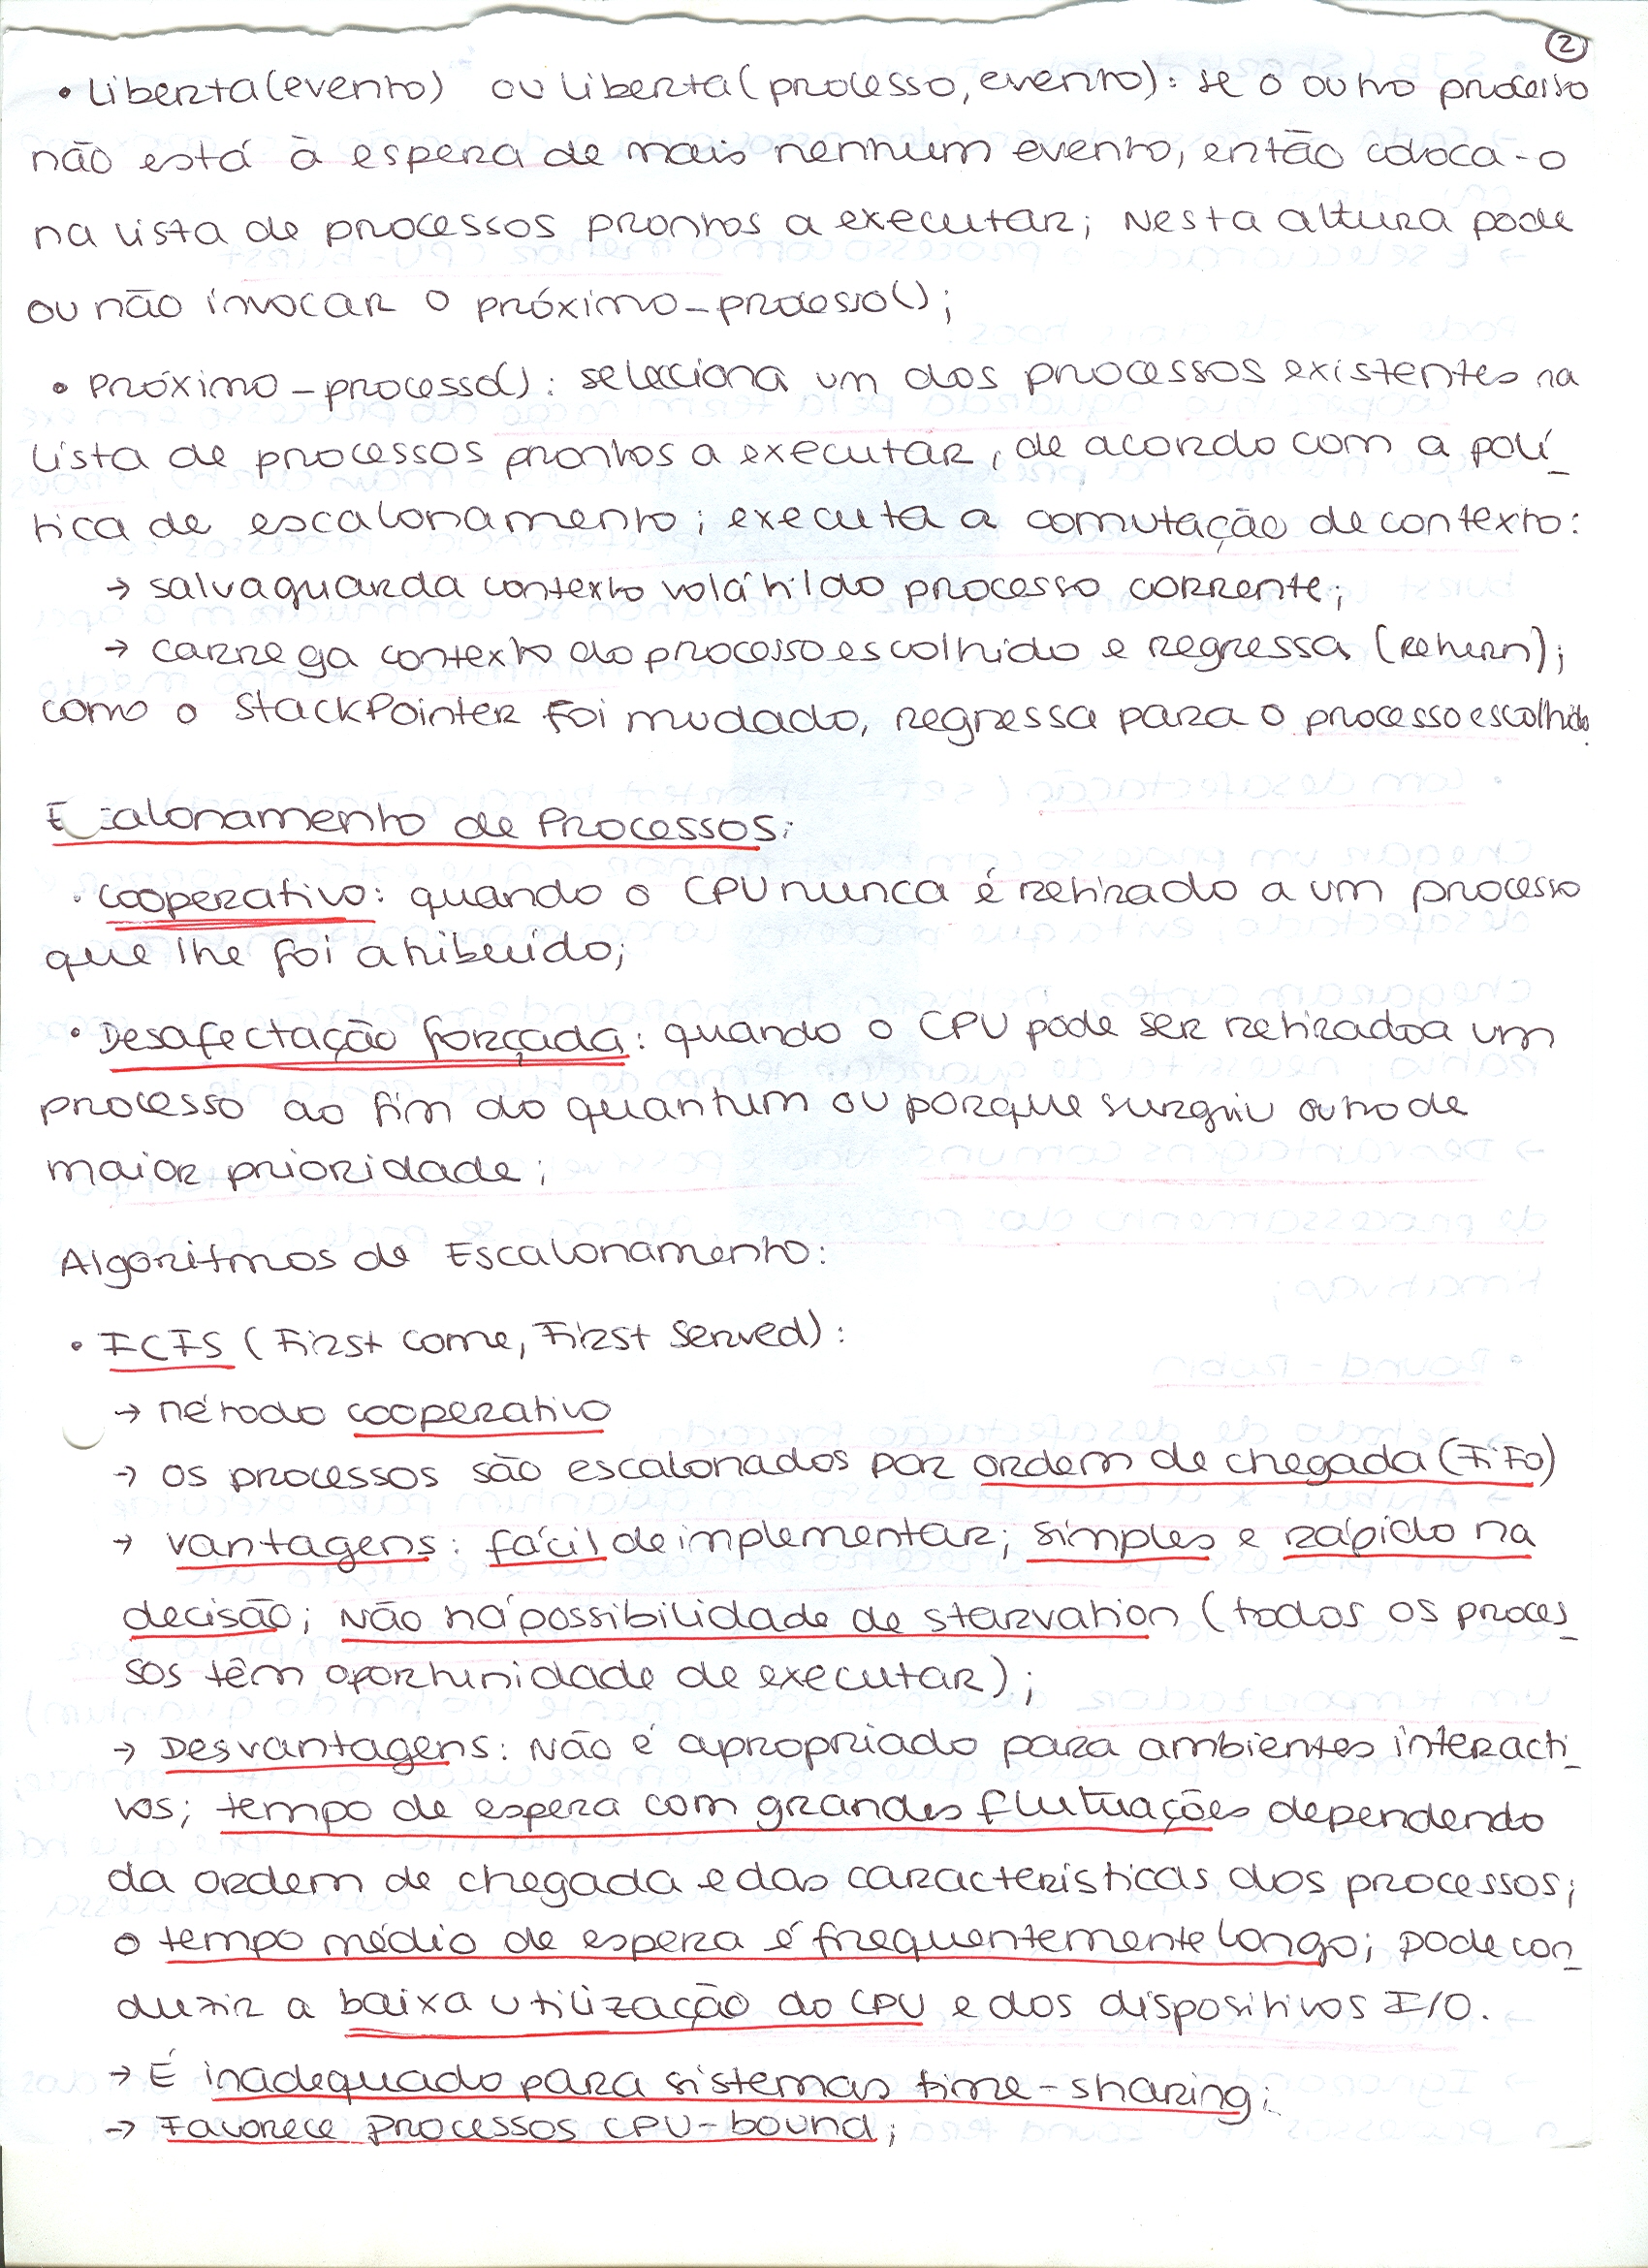 2
• Liberta(evento) ou Liberta(processo, evento): se o outro processo
não está à espera de mais nenhum evento, então coloca-o
na lista de processos prontos a executar; Nesta altura pode
ou não invocar o próximo_processo();
• Próximo_processo(): selecciona um dos processos existentes na
lista de processos prontos a executar, de acordo com a polí_
tica de escalonamento; executa a comutação de contexto:
→ salvaguarda contexto volátil do processo corrente;
→ carrega contexto do processo escolhido e regressa (return);
como o StackPointer foi mudado, regressa para o processo escolhido.
Escalonamento de Processos:
• Cooperativo: quando o CPU nunca é retirado a um processo
que lhe foi atribuído;
• Desafectação forçada: quando o CPU pode ser retirado a um
processo ao fim do quantum ou porque surgiu outro de
maior prioridade;
Algoritmos de Escalonamento:
• FCFS (First come, First Served):
→ Método cooperativo
→ Os processos são escalonados por ordem de chegada (FiFo)
→ Vantagens: fácil de implementar; simples e rápido na
decisão; Não há possibilidade de starvation (todos os proces_
sos têm oportunidade de executar);
→ Desvantagens: Não é apropriado para ambientes interacti_
vos; tempo de espera com grandes flutuações dependendo
da ordem de chegada e das características dos processos;
o tempo médio de espera é frequentemente longo; pode con_
duzir a baixa utilização do CPU e dos dispositivos I/O.
→ É inadequado para sistemas time-sharing;
→ Favorece processos CPU-bound;